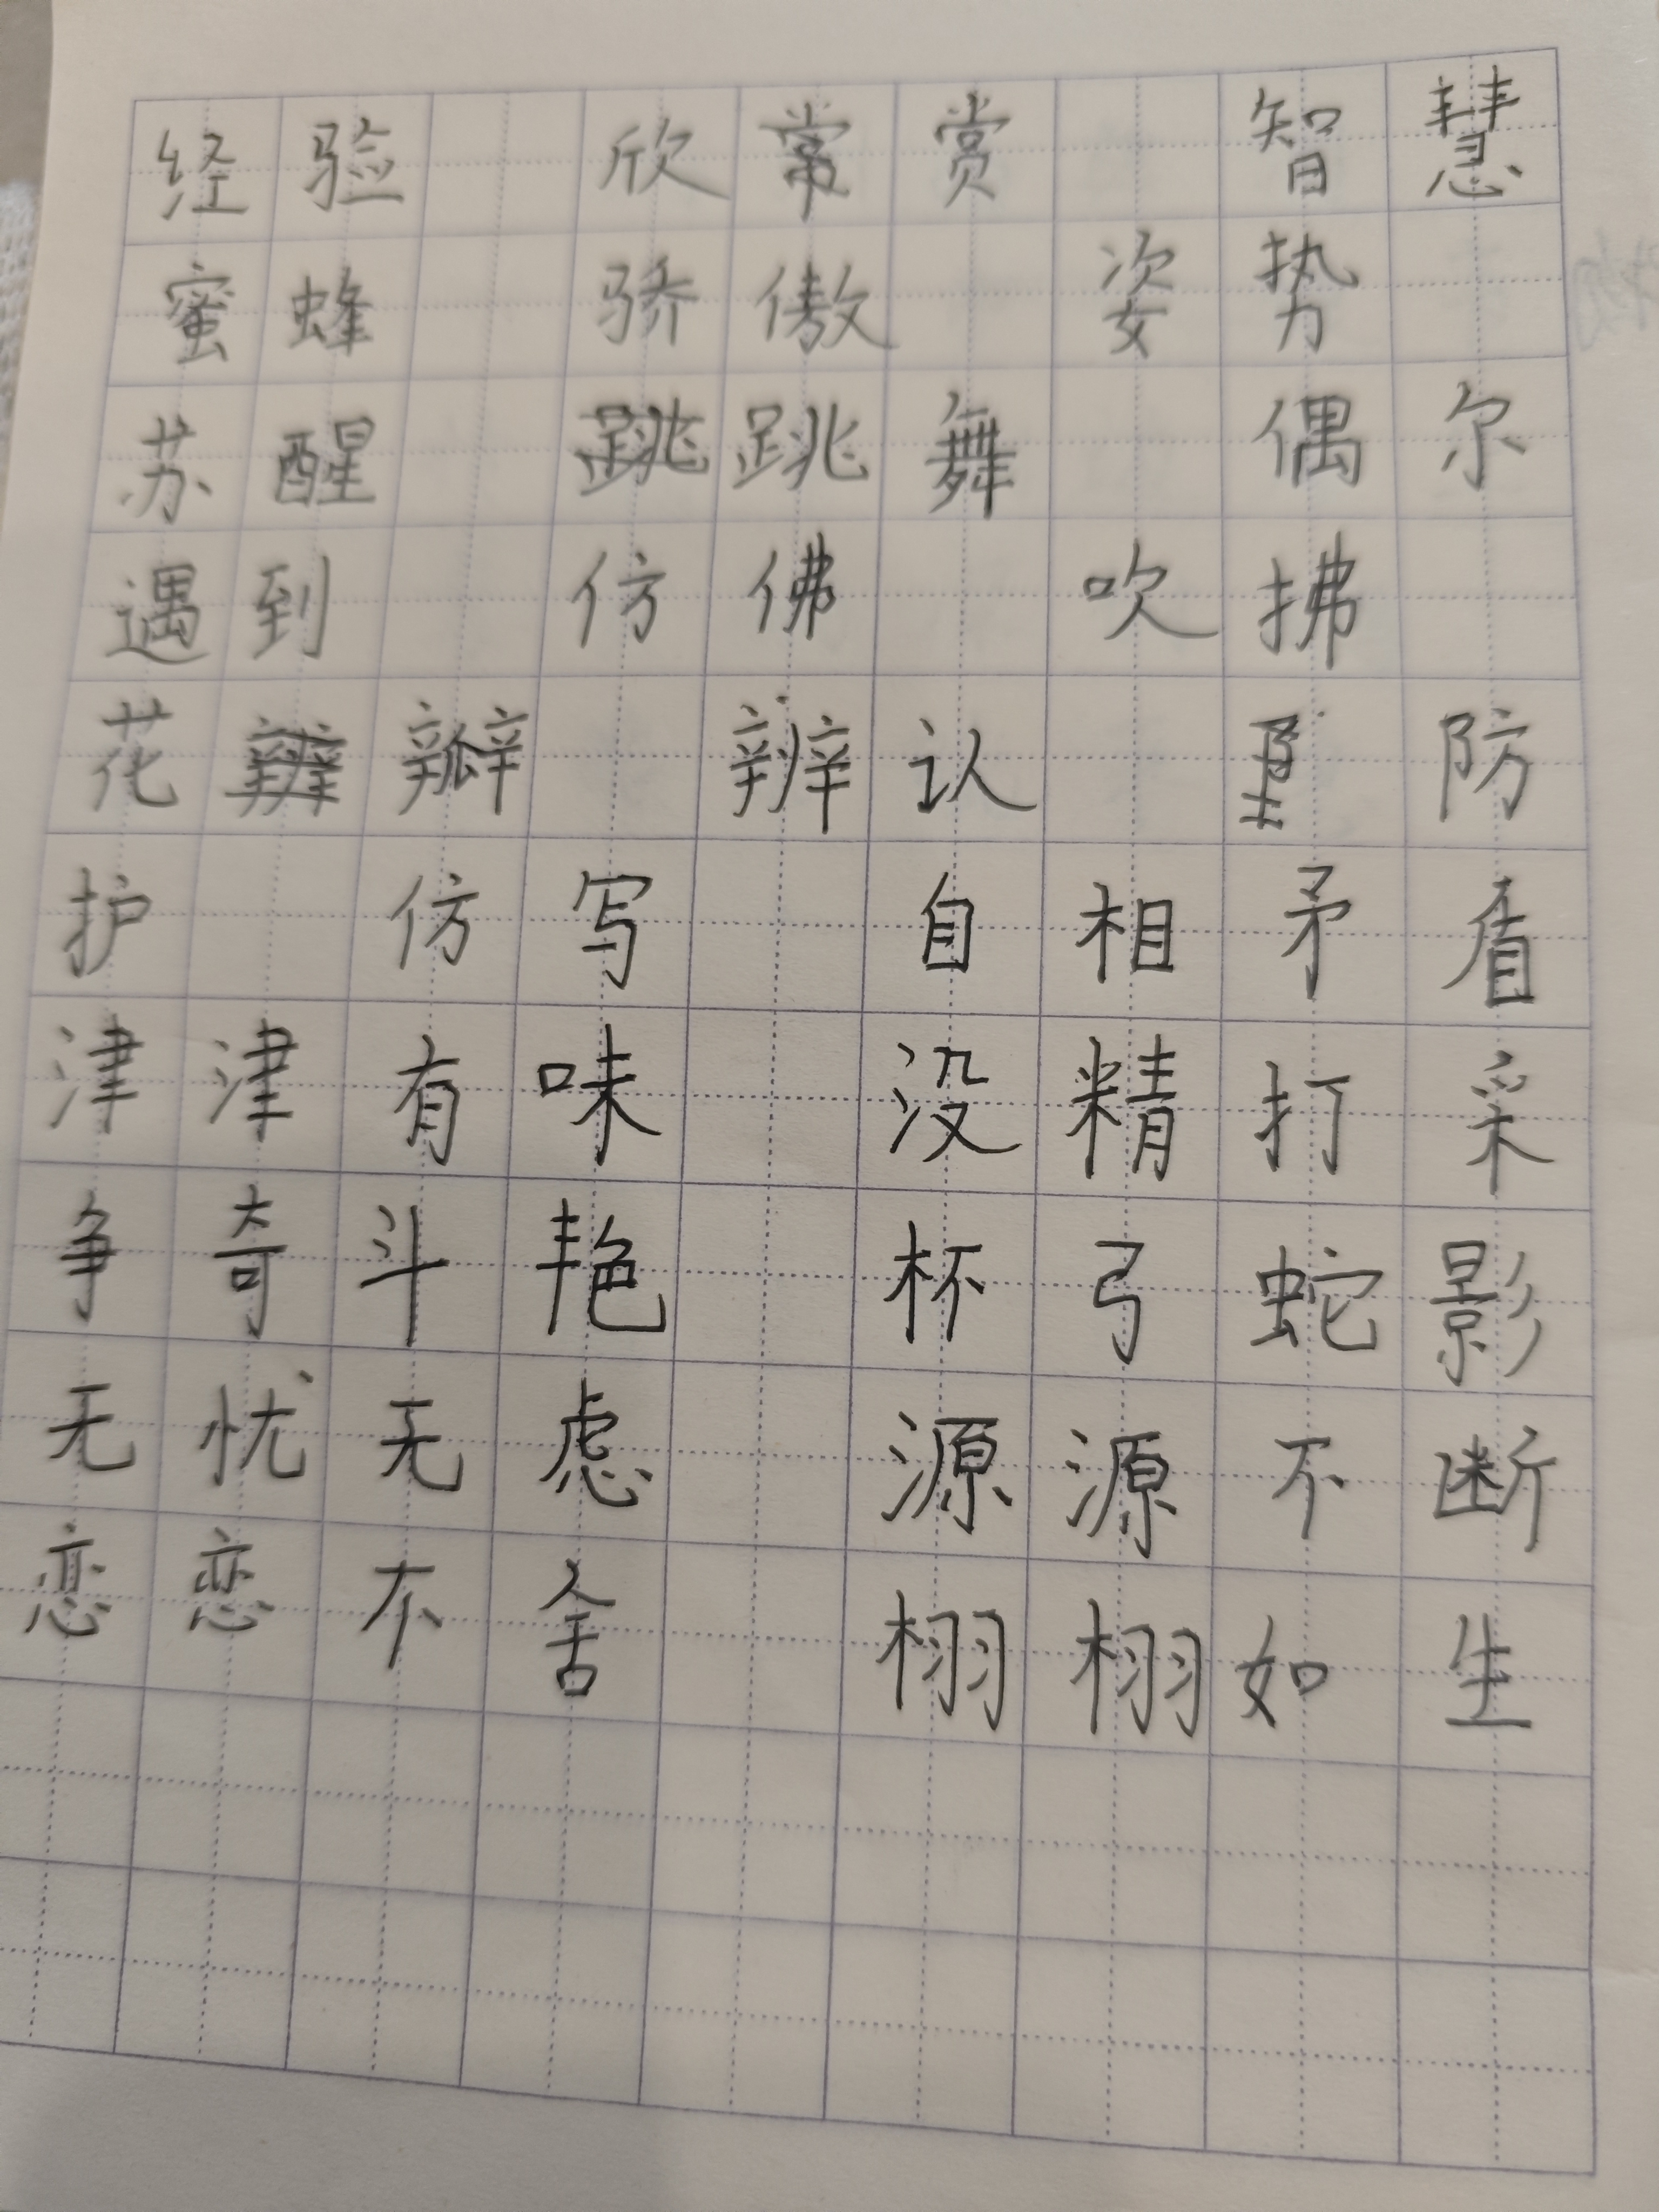 经验 欣赏 智慧
蜜蜂 骄傲 姿势
苏醒 跳舞 偶尔
遇到 仿佛 吹拂
花瓣 辨认 防
护 仿写 自相矛盾
津津有味 没精打采
争奇斗艳 杯弓蛇影
无忧无虑 源源不断
恋恋不舍 栩栩如生